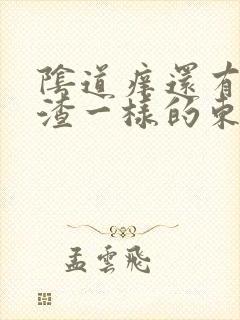 陰道痒還有
渣一樣的東
孟雲飛